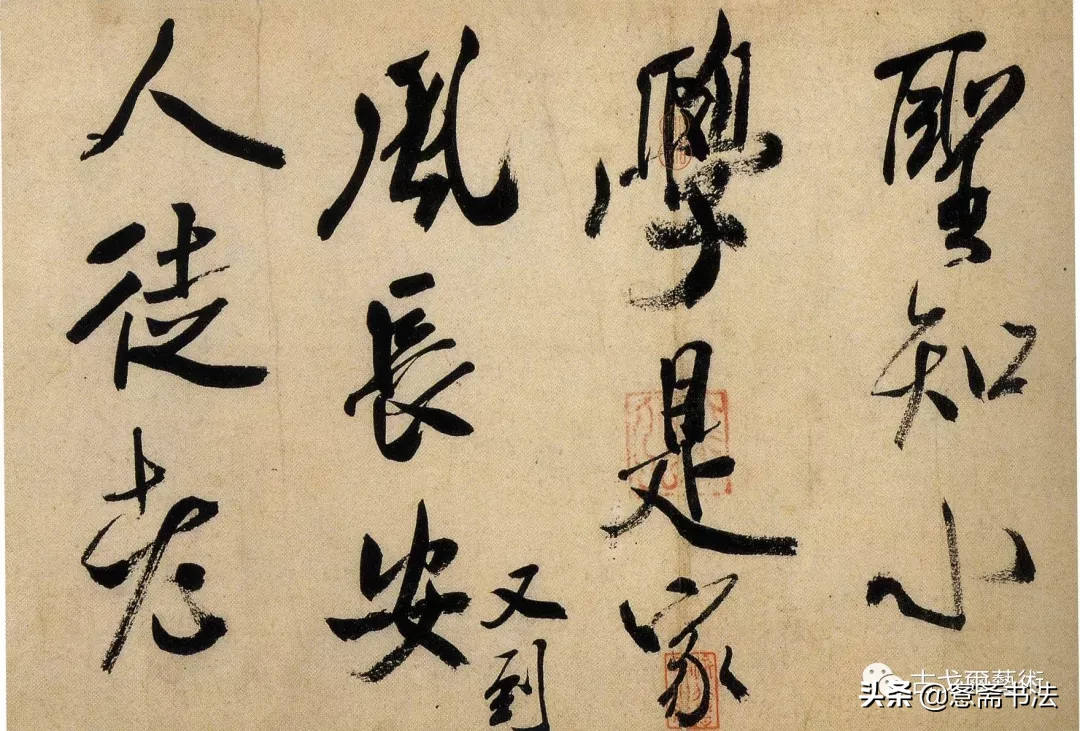 聖知小
學是家
風長安
又到
人徒老
古戈爾藝術
头条 @愙斋书法